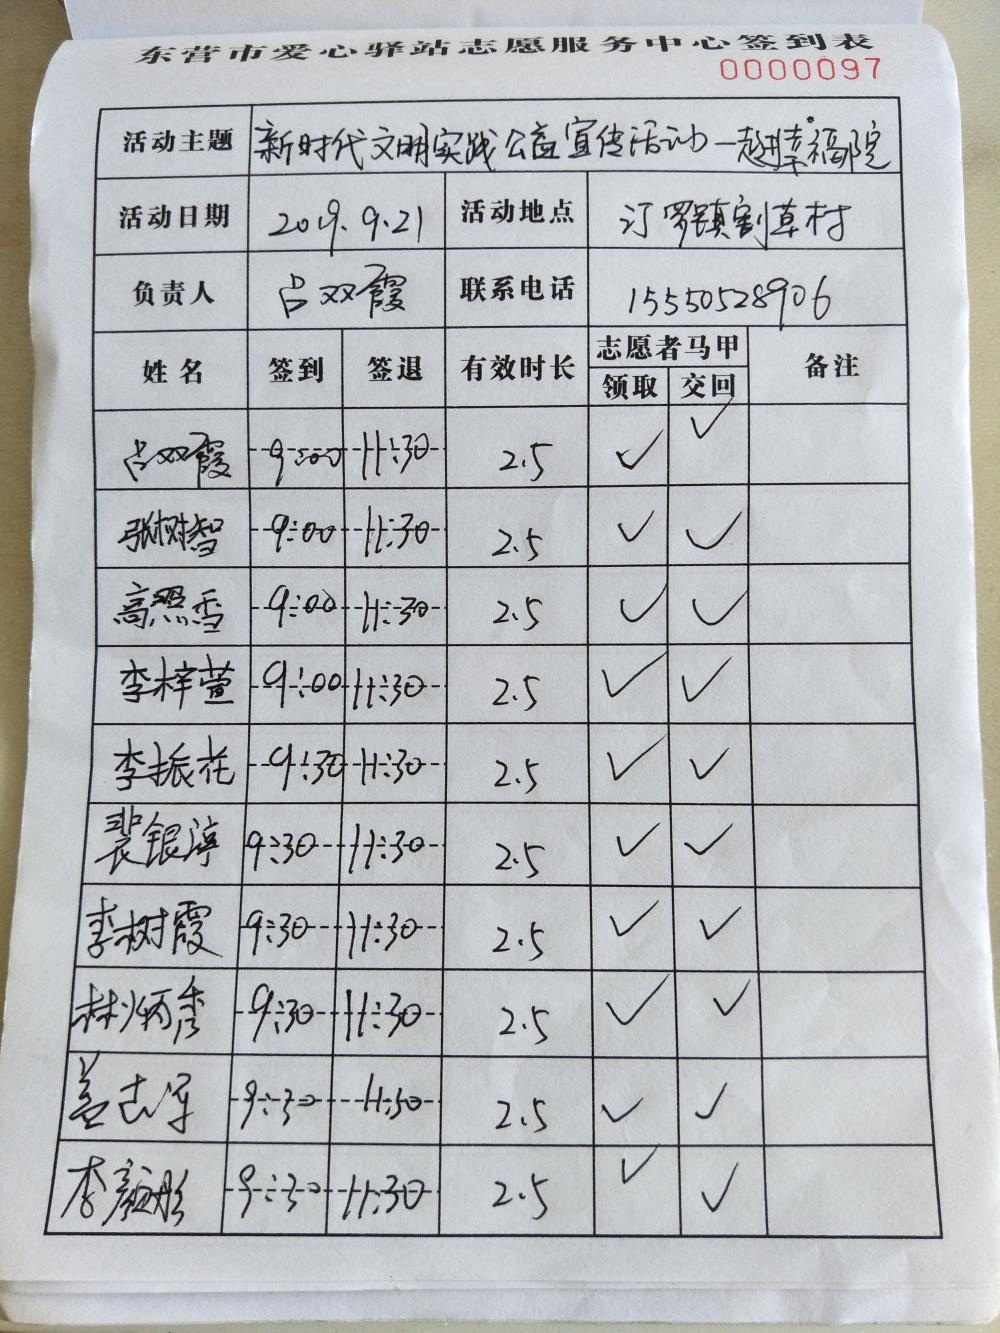 东营市爱心驿站志愿服务中心签到表
0000097
活动主题 新时代文明实践公益宣传活动—走进幸福院
活动日期 2019.9.21 活动地点 汀罗镇割草村
负责人 吕双霞 联系电话 15550528906
姓名 签到 签退 有效时长 志愿者马甲 备注
领取 交回
吕双霞 9:00 11:30 2.5 ✓ ✓
张树智 9:00 11:30 2.5 ✓ ✓
高照雪 9:00 11:30 2.5 ✓ ✓
李梓萱 9:00 11:30 2.5 ✓ ✓
李振花 9:30 11:30 2.5 ✓ ✓
裴银婷 9:30 11:30 2.5 ✓ ✓
李树霞 9:30 11:30 2.5 ✓ ✓
林炳秀 9:30 11:30 2.5 ✓ ✓
盖志军 9:30 11:30 2.5 ✓ ✓
李彦彤 9:30 11:30 2.5 ✓ ✓